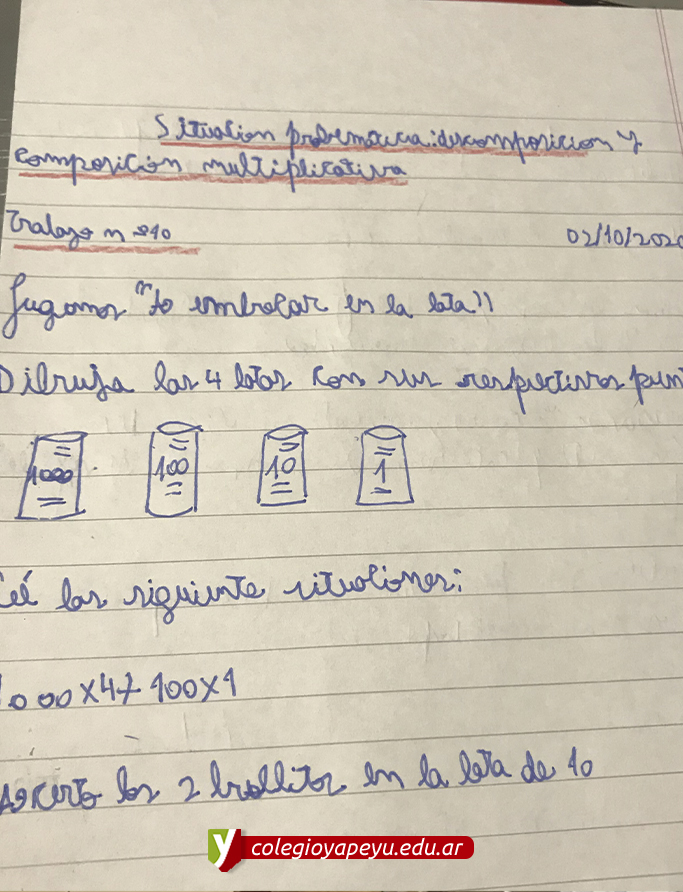 Situacion problematica: descomposicion y
composición multiplicativa
Trabajo n º10 02/10/2020
Jugamos "to embocar en la lata"
Dibuja las 4 latas con sus respectivos pun
1000 100 10 1
Leé las siguiente situaciones:
1000x4+100x1
los 2 bollitos en la lata de 10
y colegioyapeyu.edu.ar